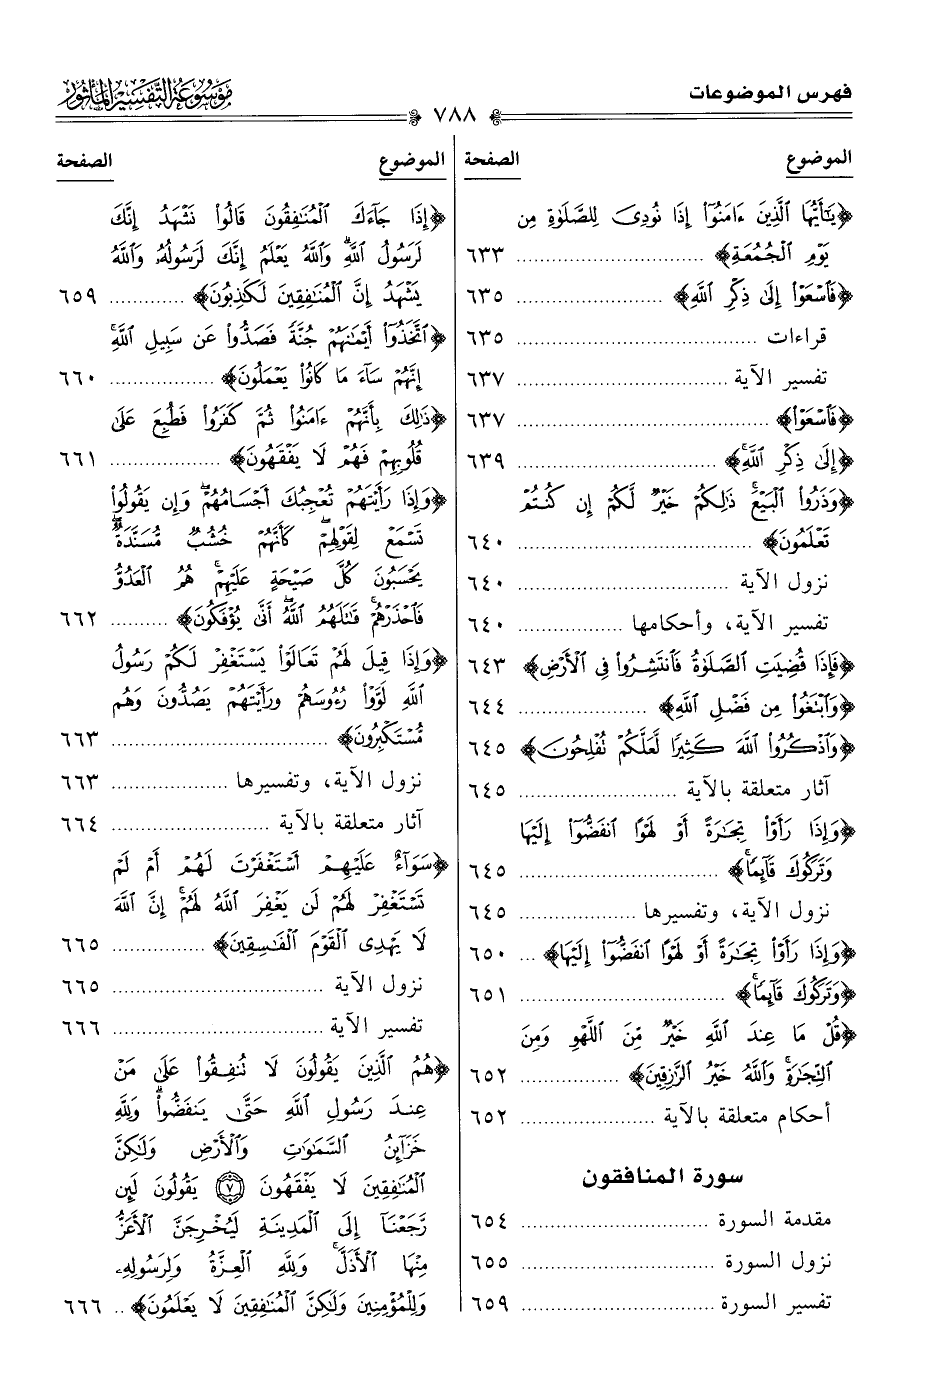 فهرس الموضوعات
٧٨٨
موسوعة التفسير المأثور
الموضوع الصفحة
﴿يَٰٓأَيُّهَا ٱلَّذِينَ ءَامَنُوٓا۟ إِذَا نُودِىَ لِلصَّلَوٰةِ مِن
يَوْمِ ٱلْجُمُعَةِ﴾ ........................ ٦٣٣
﴿فَٱسْعَوْا۟ إِلَىٰ ذِكْرِ ٱللَّهِ﴾ ................ ٦٣٥
قراءات ........................ ٦٣٥
تفسير الآية ........................ ٦٣٧
﴿فَٱسْعَوْا۟﴾ ........................ ٦٣٧
﴿إِلَىٰ ذِكْرِ ٱللَّهِ﴾ ........................ ٦٣٩
﴿وَذَرُوا۟ ٱلْبَيْعَ ۚ ذَٰلِكُمْ خَيْرٌ لَّكُمْ إِن كُنتُمْ
تَعْلَمُونَ﴾ ........................ ٦٤٠
نزول الآية ........................ ٦٤٠
تفسير الآية، وأحكامها ................ ٦٤٠
﴿فَإِذَا قُضِيَتِ ٱلصَّلَوٰةُ فَٱنتَشِرُوا۟ فِى ٱلْأَرْضِ﴾ ٦٤٣
﴿وَٱبْتَغُوا۟ مِن فَضْلِ ٱللَّهِ﴾ ................ ٦٤٤
﴿وَٱذْكُرُوا۟ ٱللَّهَ كَثِيرًا لَّعَلَّكُمْ تُفْلِحُونَ﴾ ٦٤٥
آثار متعلقة بالآية ................ ٦٤٥
﴿وَإِذَا رَأَوْا۟ تِجَٰرَةً أَوْ لَهْوًا ٱنفَضُّوٓا۟ إِلَيْهَا
وَتَرَكُوكَ قَآئِمًا ۚ﴾ ........................ ٦٤٥
نزول الآية، وتفسيرها ................ ٦٤٥
﴿وَإِذَا رَأَوْا۟ تِجَٰرَةً أَوْ لَهْوًا ٱنفَضُّوٓا۟ إِلَيْهَا﴾ ... ٦٥٠
﴿وَتَرَكُوكَ قَآئِمًا ۚ﴾ ........................ ٦٥١
﴿قُلْ مَا عِندَ ٱللَّهِ خَيْرٌ مِّنَ ٱللَّهْوِ وَمِنَ
ٱلتِّجَٰرَةِ ۚ وَٱللَّهُ خَيْرُ ٱلرَّٰزِقِينَ﴾ ................ ٦٥٢
أحكام متعلقة بالآية ................ ٦٥٢
سورة المنافقون
مقدمة السورة ........................ ٦٥٤
نزول السورة ........................ ٦٥٥
تفسير السورة ........................ ٦٥٩
الموضوع الصفحة
﴿إِذَا جَآءَكَ ٱلْمُنَٰفِقُونَ قَالُوا۟ نَشْهَدُ إِنَّكَ
لَرَسُولُ ٱللَّهِ ۗ وَٱللَّهُ يَعْلَمُ إِنَّكَ لَرَسُولُهُۥ وَٱللَّهُ
يَشْهَدُ إِنَّ ٱلْمُنَٰفِقِينَ لَكَٰذِبُونَ﴾ ............ ٦٥٩
﴿ٱتَّخَذُوٓا۟ أَيْمَٰنَهُمْ جُنَّةً فَصَدُّوا۟ عَن سَبِيلِ ٱللَّهِ ۚ
إِنَّهُمْ سَآءَ مَا كَانُوا۟ يَعْمَلُونَ﴾ ................ ٦٦٠
﴿ذَٰلِكَ بِأَنَّهُمْ ءَامَنُوا۟ ثُمَّ كَفَرُوا۟ فَطُبِعَ عَلَىٰ
قُلُوبِهِمْ فَهُمْ لَا يَفْقَهُونَ﴾ ................ ٦٦١
﴿وَإِذَا رَأَيْتَهُمْ تُعْجِبُكَ أَجْسَامُهُمْ ۖ وَإِن يَقُولُوا۟
تَسْمَعْ لِقَوْلِهِمْ ۖ كَأَنَّهُمْ خُشُبٌ مُّسَنَّدَةٌ ۖ
يَحْسَبُونَ كُلَّ صَيْحَةٍ عَلَيْهِمْ ۚ هُمُ ٱلْعَدُوُّ
فَٱحْذَرْهُمْ ۚ قَٰتَلَهُمُ ٱللَّهُ ۖ أَنَّىٰ يُؤْفَكُونَ﴾ .......... ٦٦٢
﴿وَإِذَا قِيلَ لَهُمْ تَعَالَوْا۟ يَسْتَغْفِرْ لَكُمْ رَسُولُ
ٱللَّهِ لَوَّوْا۟ رُءُوسَهُمْ وَرَأَيْتَهُمْ يَصُدُّونَ وَهُم
مُّسْتَكْبِرُونَ﴾ ........................ ٦٦٣
نزول الآية، وتفسيرها ................ ٦٦٣
آثار متعلقة بالآية ................ ٦٦٤
﴿سَوَآءٌ عَلَيْهِمْ أَسْتَغْفَرْتَ لَهُمْ أَمْ لَمْ
تَسْتَغْفِرْ لَهُمْ لَن يَغْفِرَ ٱللَّهُ لَهُمْ ۚ إِنَّ ٱللَّهَ
لَا يَهْدِى ٱلْقَوْمَ ٱلْفَٰسِقِينَ﴾ ............ ٦٦٥
نزول الآية ........................ ٦٦٥
تفسير الآية ........................ ٦٦٦
﴿هُمُ ٱلَّذِينَ يَقُولُونَ لَا تُنفِقُوا۟ عَلَىٰ مَنْ
عِندَ رَسُولِ ٱللَّهِ حَتَّىٰ يَنفَضُّوا۟ ۗ وَلِلَّهِ
خَزَآئِنُ ٱلسَّمَٰوَٰتِ وَٱلْأَرْضِ وَلَٰكِنَّ
ٱلْمُنَٰفِقِينَ لَا يَفْقَهُونَ ۝٧ يَقُولُونَ لَئِن
رَّجَعْنَآ إِلَى ٱلْمَدِينَةِ لَيُخْرِجَنَّ ٱلْأَعَزُّ
مِنْهَا ٱلْأَذَلَّ ۚ وَلِلَّهِ ٱلْعِزَّةُ وَلِرَسُولِهِۦ
وَلِلْمُؤْمِنِينَ وَلَٰكِنَّ ٱلْمُنَٰفِقِينَ لَا يَعْلَمُونَ﴾ .. ٦٦٦